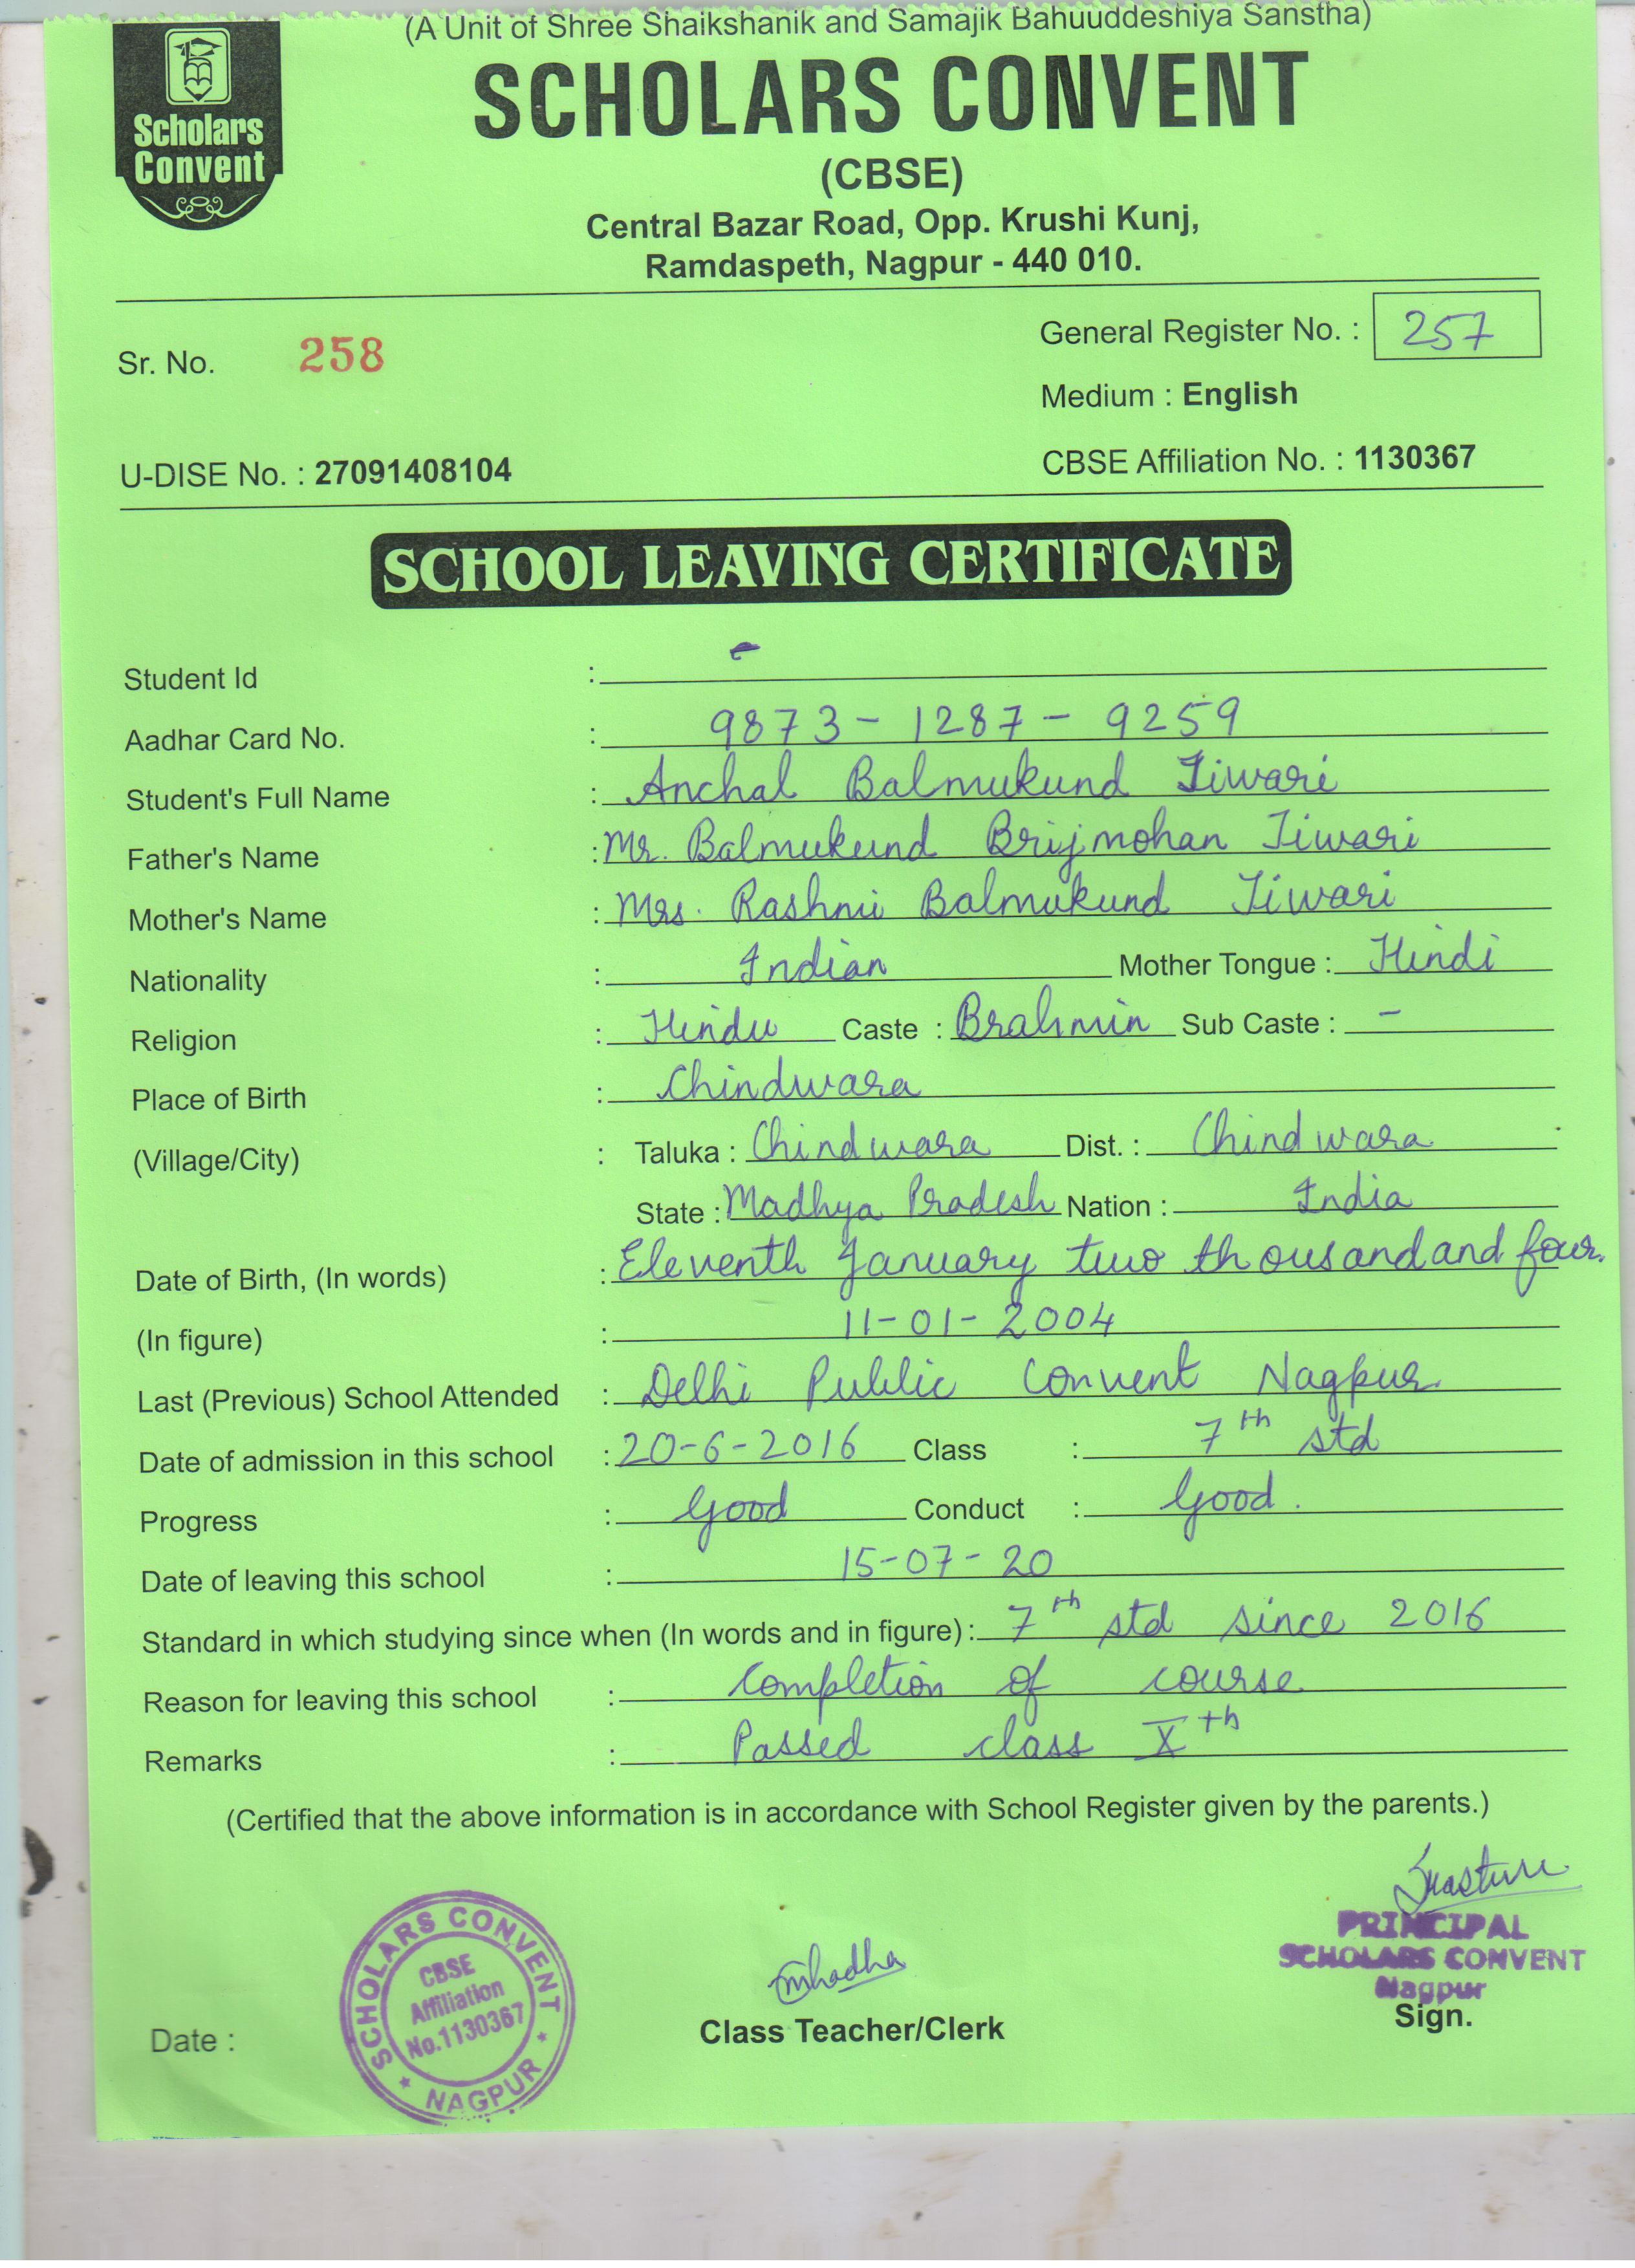 (A Unit of Shree Shaikshanik and Samajik Bahuuddeshiya Sanstha)
Scholars
Convent
SCHOLARS CONVENT
(CBSE)
Central Bazar Road, Opp. Krushi Kunj,
Ramdaspeth, Nagpur - 440 010.
Sr. No. 258
General Register No. : 257
Medium : English
U-DISE No. : 27091408104
CBSE Affiliation No. : 1130367
SCHOOL LEAVING CERTIFICATE
Student Id :
Aadhar Card No. : 9873 - 1287 - 9259
Student's Full Name : Anchal Balmukund Tiwari
Father's Name : Mr. Balmukund Brijmohan Tiwari
Mother's Name : Mrs. Rashmi Balmukund Tiwari
Nationality : Indian Mother Tongue : Hindi
Religion : Hindu Caste : Brahmin Sub Caste : -
Place of Birth : Chindwara
(Village/City) : Taluka : Chindwara Dist. : Chindwara
State : Madhya Pradesh Nation : India
Date of Birth, (In words) : Eleventh January two thousand and four.
(In figure) : 11-01-2004
Last (Previous) School Attended : Delhi Public Convent Nagpur
Date of admission in this school : 20-6-2016 Class : 7th std
Progress : Good Conduct : Good.
Date of leaving this school : 15-07-20
Standard in which studying since when (In words and in figure) : 7th std since 2016
Reason for leaving this school : Completion of course
Remarks : Passed class Xth
(Certified that the above information is in accordance with School Register given by the parents.)
SCHOLARS CONVENT
CBSE
Affiliation
No.1130367
NAGPUR
PRINCIPAL
SCHOLARS CONVENT
Nagpur
Date :
Class Teacher/Clerk
Sign.